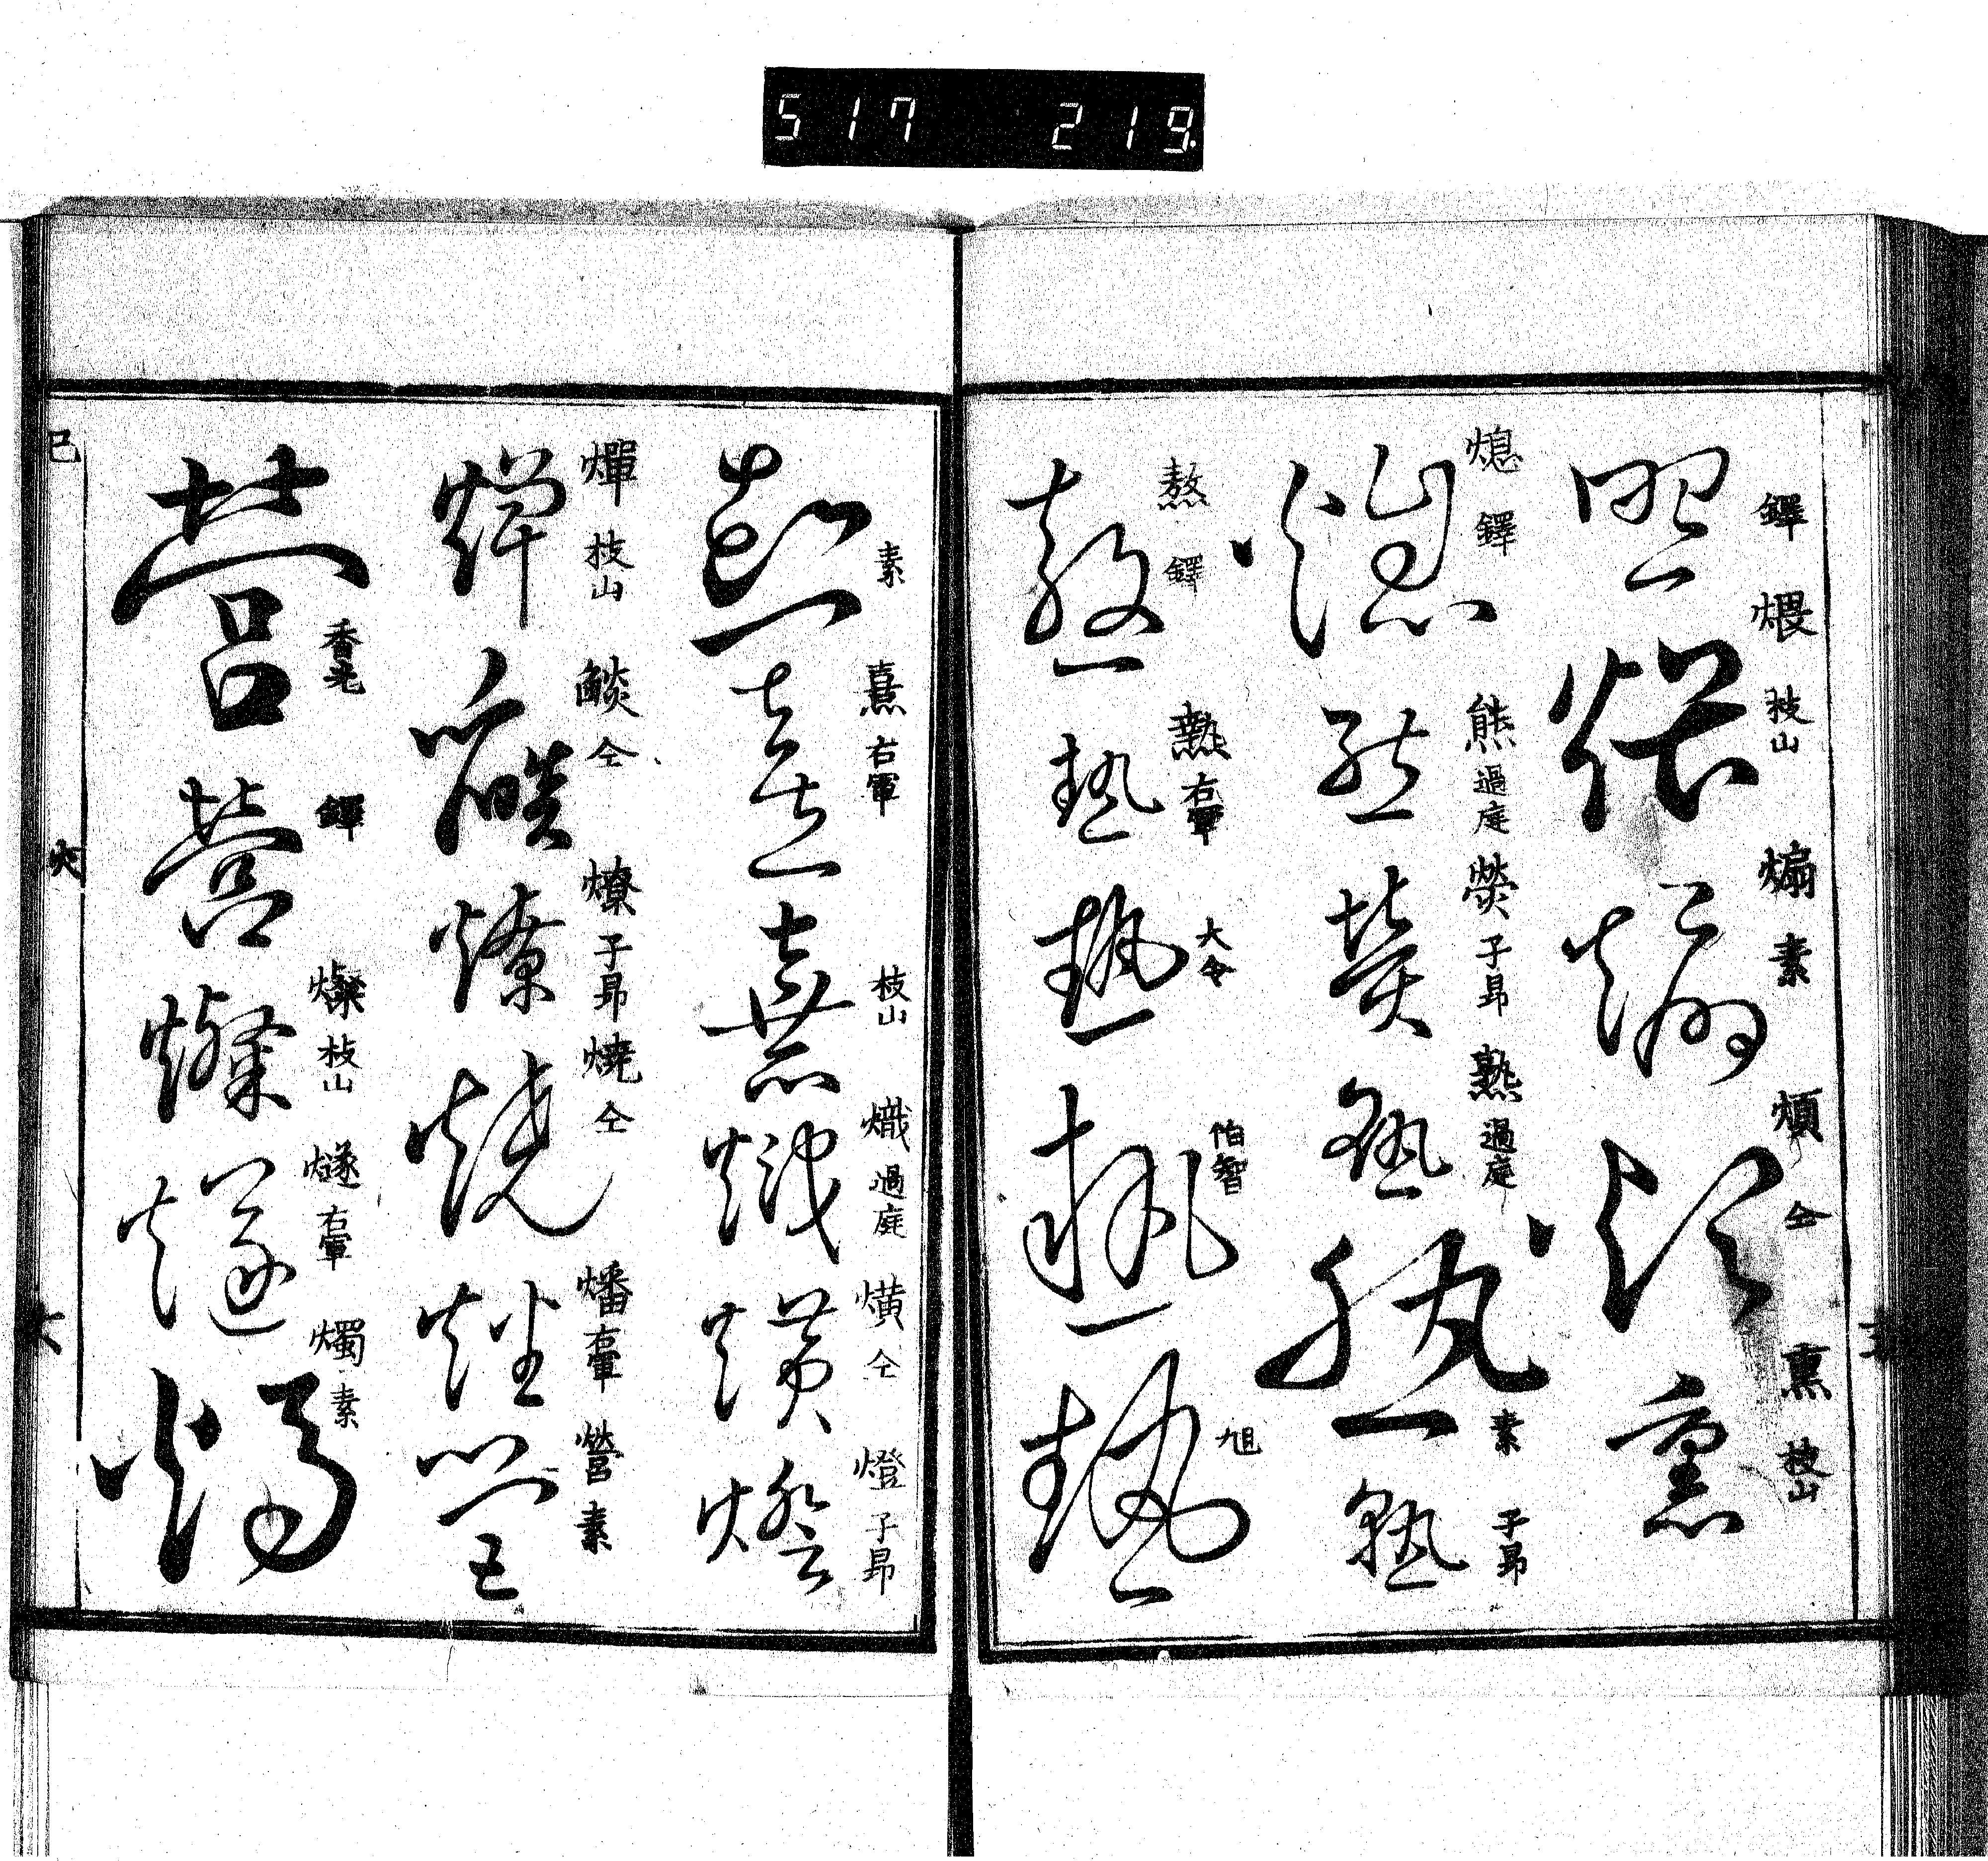 517 219
鐸 煨 枝山 煽 素 煩 仝 熏 枝山
熄 鐸 熊 過庭 熒 子昻 熟 過庭 素 子昻
熬 鐸 熱 右軍 大令 伯智 旭
素 熹 右軍 枝山 熾 過庭 熿 仝 燈 子昻
燀 枝山 燄 仝 燎 子昻 燒 仝 燔 右軍 營 素
香光 鐸 燦 枝山 燧 右軍 燭 素
巳 火 六